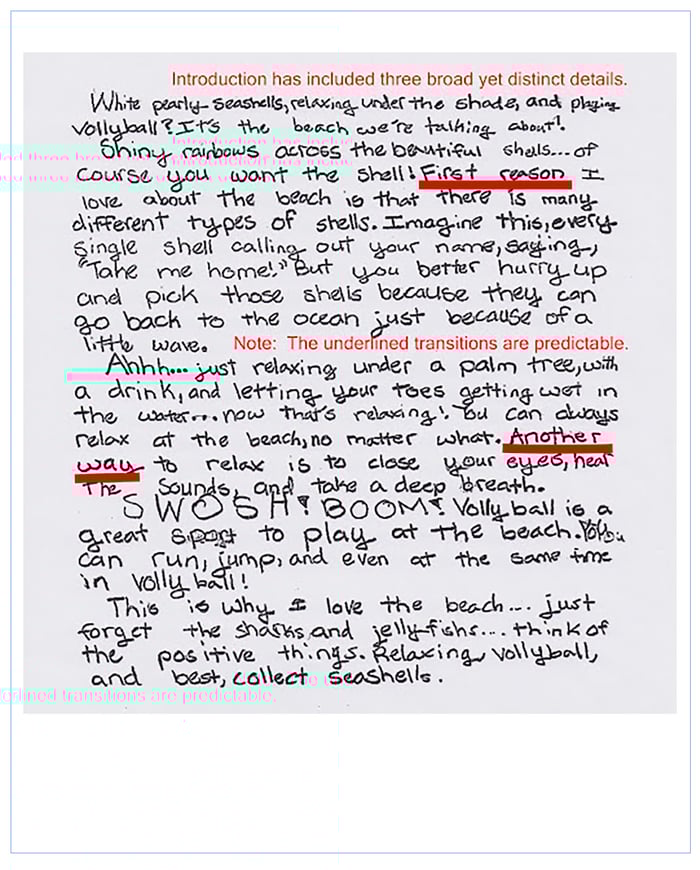 Introduction has included three broad yet distinct details.
White pearly seashells, relaxing under the shade, and playing
vollyball? It's the beach we're talking about!
Shiny rainbows across the beautiful shells... of
course you want the shell! First reason I
love about the beach is that there is many
different types of shells. Imagine this, every
single shell calling out your name, saying,
"Take me home!" But you better hurry up
and pick those shells because they can
go back to the ocean just because of a
little wave. Note: The underlined transitions are predictable.
Ahhh... just relaxing under a palm tree, with
a drink, and letting your toes getting wet in
the water... now that's relaxing! You can always
relax at the beach, no matter what. Another
way to relax is to close your eyes, hear
the sounds, and take a deep breath.
SWOSH! BOOM! Vollyball is a
great sport to play at the beach. You
can run, jump, and even at the same time
in vollyball!
This is why I love the beach... just
forget the sharks and jelly-fishs... think of
the positive things. Relaxing, vollyball,
and best, collect seashells.
lined transitions are predictable.